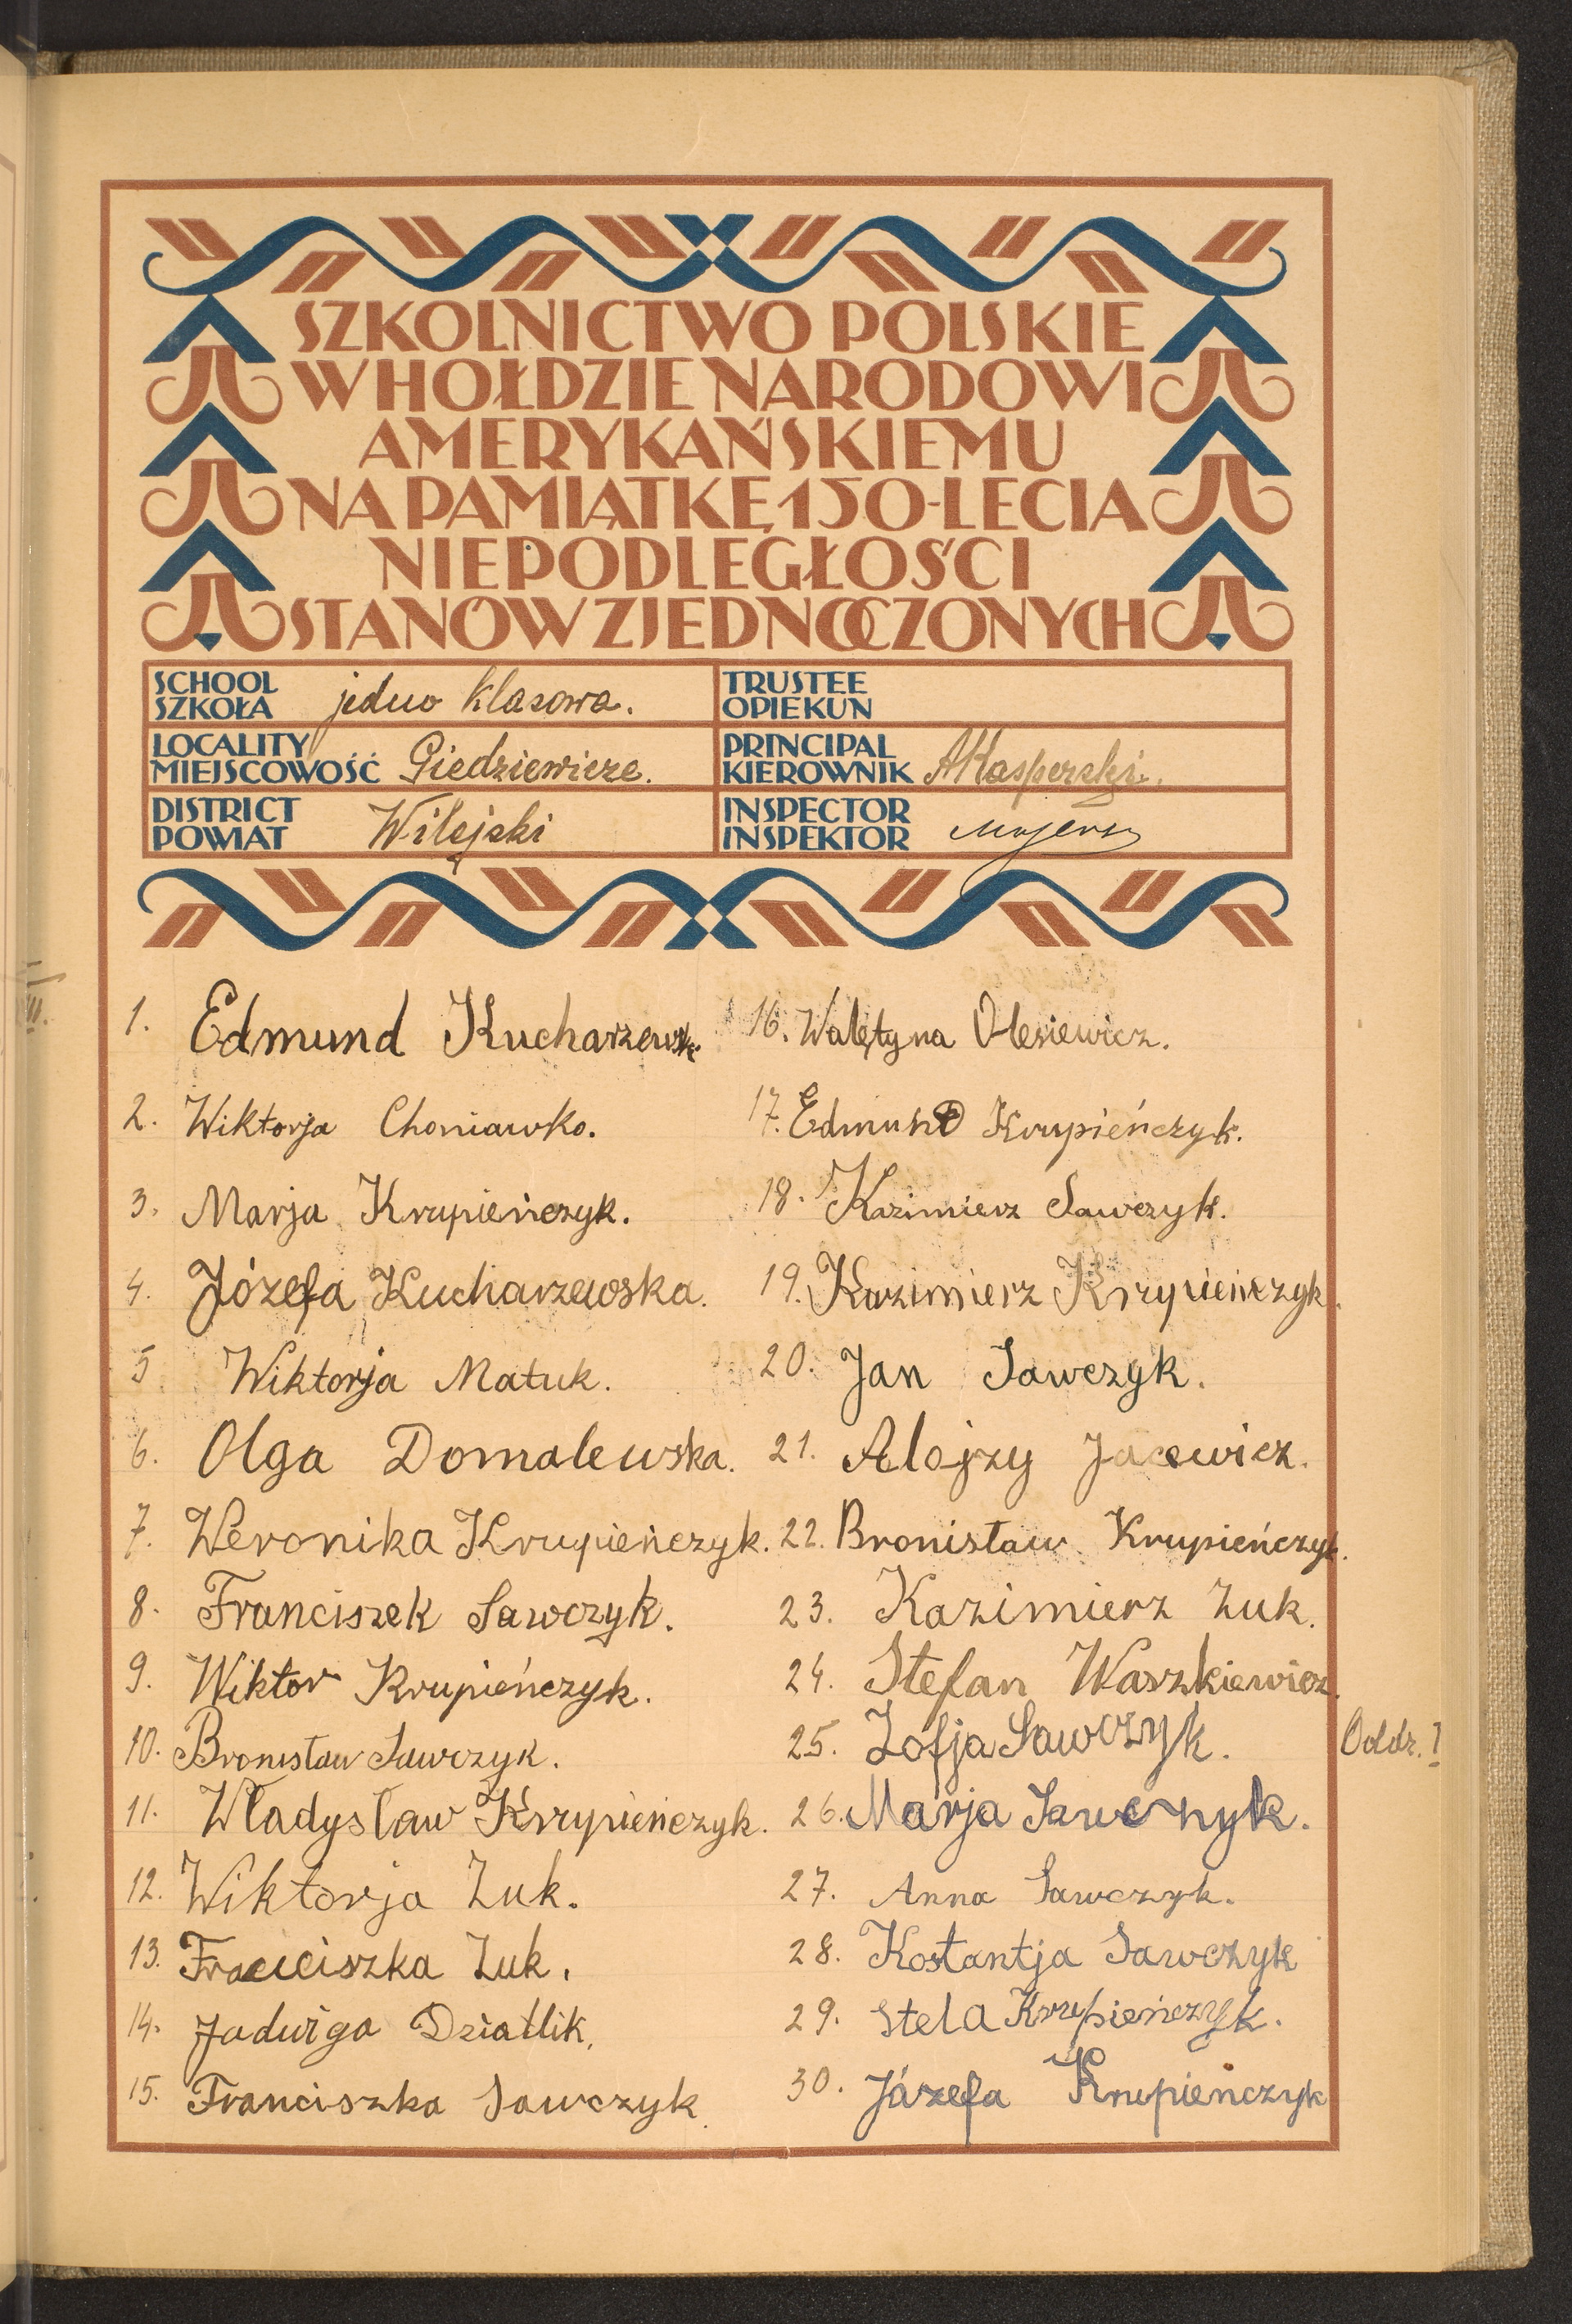 SZKOLNICTWO POLSKIE
W HOŁDZIE NARODOWI
AMERYKAŃSKIEMU
NA PAMIĄTKĘ 150-LECIA
NIEPODLEGŁOŚCI
STANÓW ZJEDNOCZONYCH
SCHOOL
SZKOŁA jedno klasowa.
TRUSTEE
OPIEKUN
LOCALITY
MIEJSCOWOŚĆ Giedziewicze.
PRINCIPAL
KIEROWNIK AKasperski.
DISTRICT
POWIAT Wilejski
INSPECTOR
INSPEKTOR
1. Edmund Kucharzewski
2. Wiktorja Choniawko.
3. Marja Krupieńczyk.
4. Józefa Kucharzewska.
5 Wiktorja Matuk.
6. Olga Domalewska.
7. Weronika Krupieńczyk.
8. Franciszek Sawczyk.
9. Wiktor Krupieńczyk.
10. Bronisław Sawczyk.
11. Władysław Krrypieńczyk.
12. Wiktorja Żuk.
13. Franciszka Żuk.
14. Jadwiga Dziatlik.
15. Franciszka Sawczyk.
16. Walętyna Olesiewicz.
17. Edmund Krupieńczyk.
18. Kazimierz Sawczyk.
19. Kazimierz Krrypieńczyk.
20. Jan Sawczyk.
21. Alojzy Jacewicz.
22. Bronisław Krupieńczyk.
23. Kazimierz Żuk.
24. Stefan Waszkiewicz.
25. Zofja Sawczyk. Oddz. I
26. Marja Sawcnyk.
27. Anna Sawczyk.
28. Kostantja Sawczyk
29. Stela Krupieńczyk.
30. Józefa Krupieńczyk